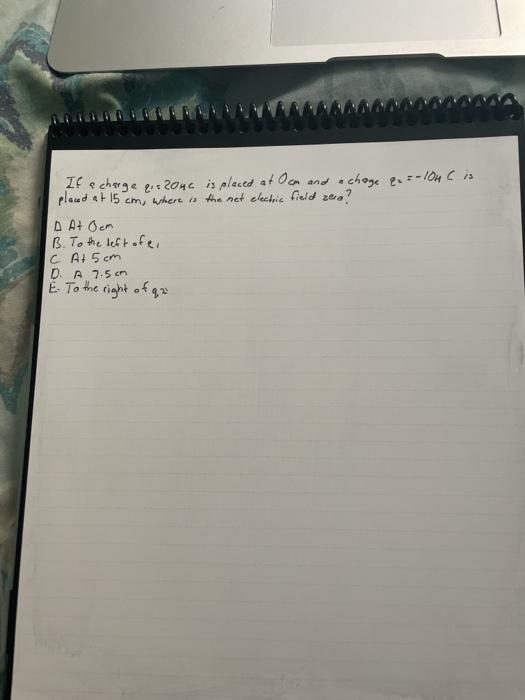 If a charge q1=20μC is placed at 0cm and a charge q2=-10μC is
placed at 15 cm, where is the net electric field zero?
A At 0cm
B. To the left of q1
C At 5cm
D. A 7.5cm
E. To the right of q2